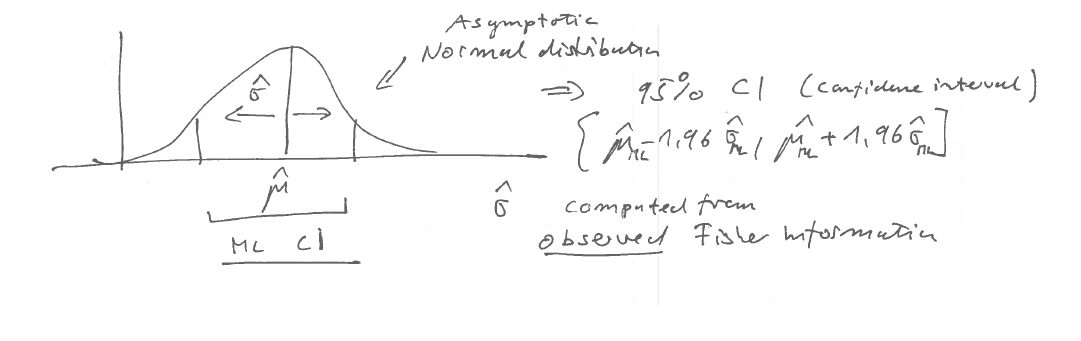 Asymptotic
Normal distribution
σ̂
⇒ 95% CI (confidence interval)
[μ̂_ML - 1,96 σ̂_ML, μ̂_ML + 1,96 σ̂_ML]
μ̂
σ̂ computed from
observed Fisher Information
ML CI